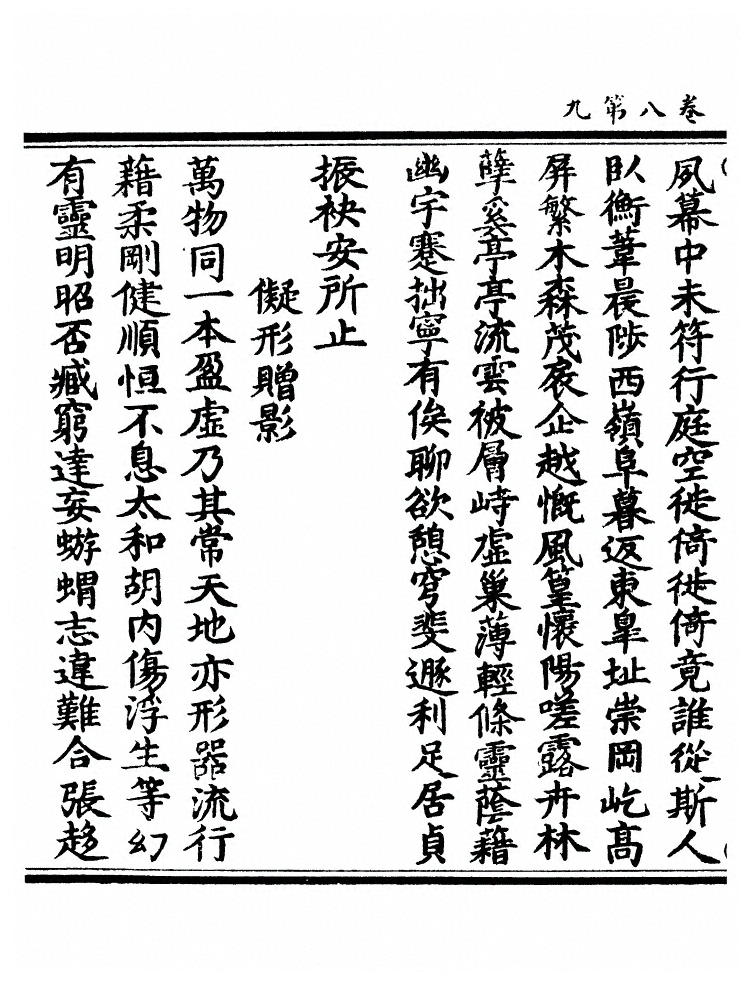 卷八第九
夙幕中未符行庭空徙倚徙倚竟誰從斯人
臥衡葦晨陟西嶺阜暮返東臯址崇岡屹高
屏繁木森茂扆企越慨風篁懷陽嗟露卉林
孽奚亭亭流雲被層峙虛巢薄輕條靈蔭藉
幽宇蹇拙寧有俟聊欲憩穹斐遯利足居貞
振袂安所止
儗形贈影
萬物同一本盈虛乃其常天地亦形器流行
藉柔剛健順恒不息太和胡內傷浮生等幻
有靈明昭否臧窮達妄蝣蝟志違難合張趍